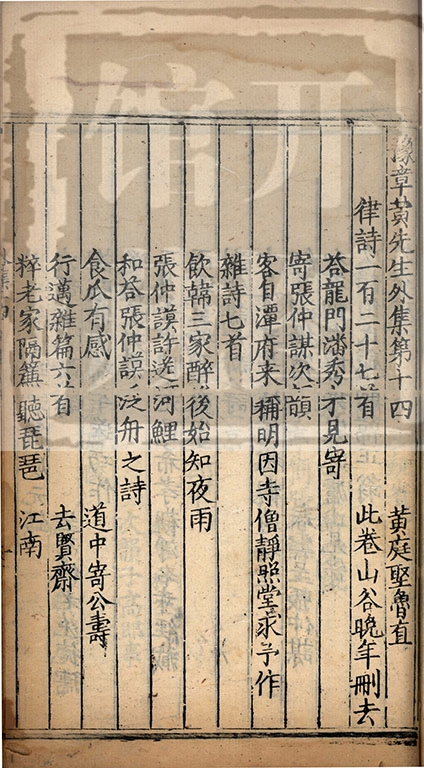 豫章黃先生外集第十四
黃庭堅魯直
律詩一百二十七首 此卷山谷晚年刪去
荅龍門潘秀才見寄
寄張仲謀次韻
客自潭府來稱明因寺僧靜照堂求予作
雜詩七首
飲韓三家醉後始知夜雨
張仲謨許送河鯉
和荅張仲謨泛舟之詩
食瓜有感 道中寄公壽
行邁雜篇六首 去賢齋
粹老家隔簾聽琵琶 江南